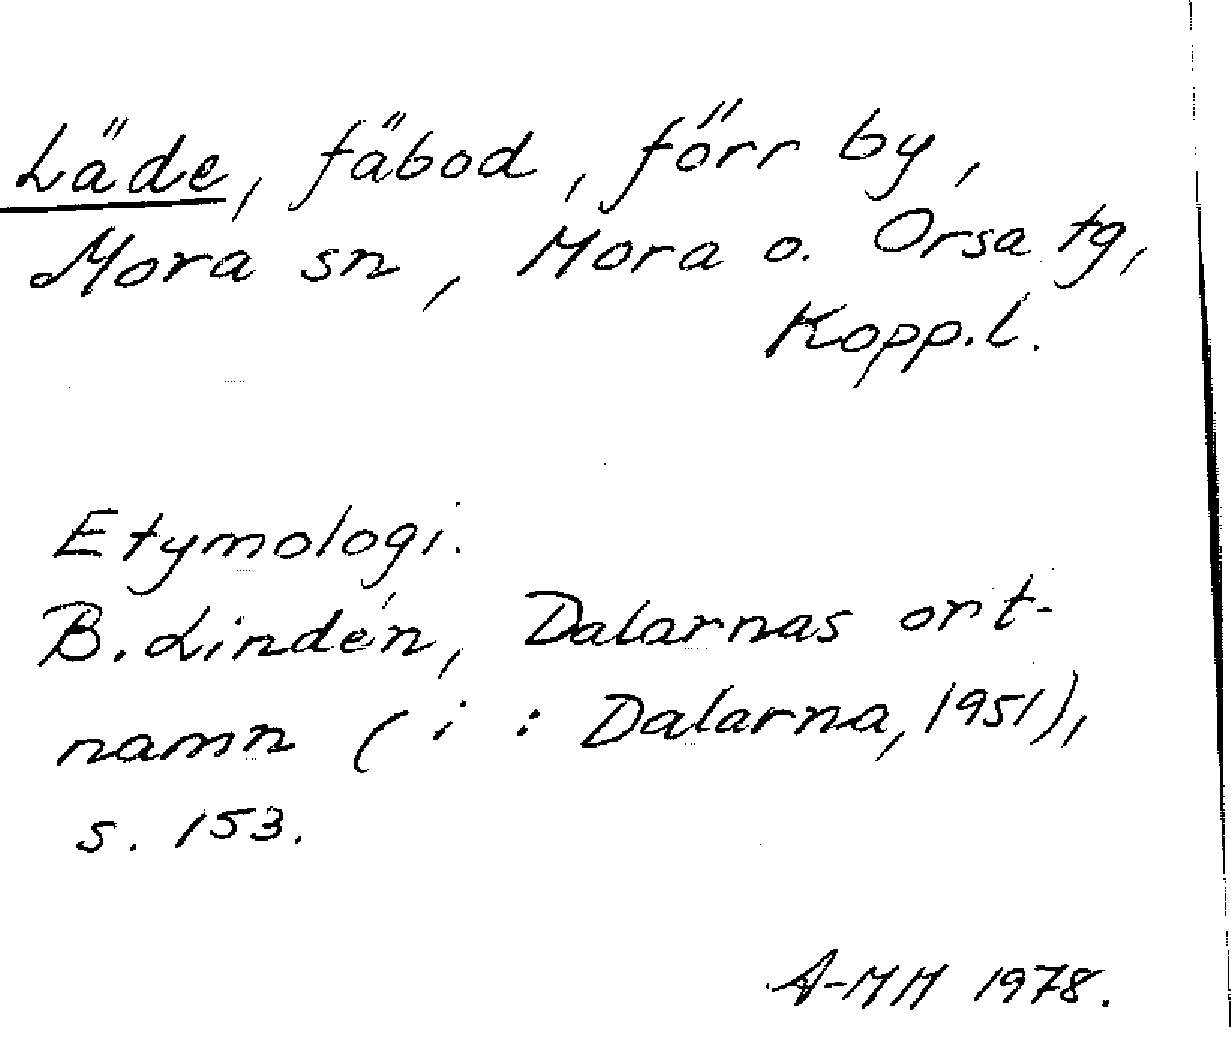 Läde, fäbod, förr by,
Mora sn, Mora o. Orsa tg,
Kopp.l.
Etymologi.
B. Lindén, Dalarnas ort-
namn (i: Dalarna, 1951),
s. 153.
A-MM 1978.